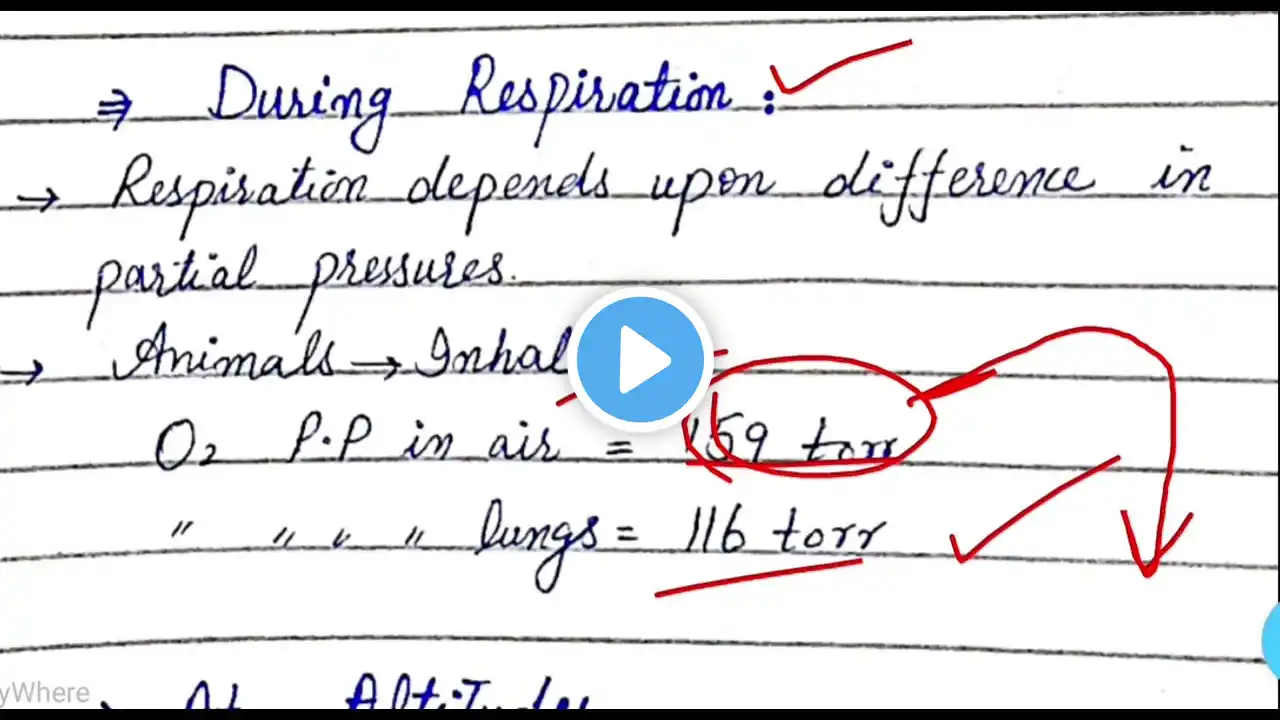 ⇒ During Respiration :
→ Respiration depends upon difference in
partial pressures.
→ Animals → Inhal
O₂ P.P in air = 159 torr
" " " " lungs = 116 torr
At Altitudes
yWhere